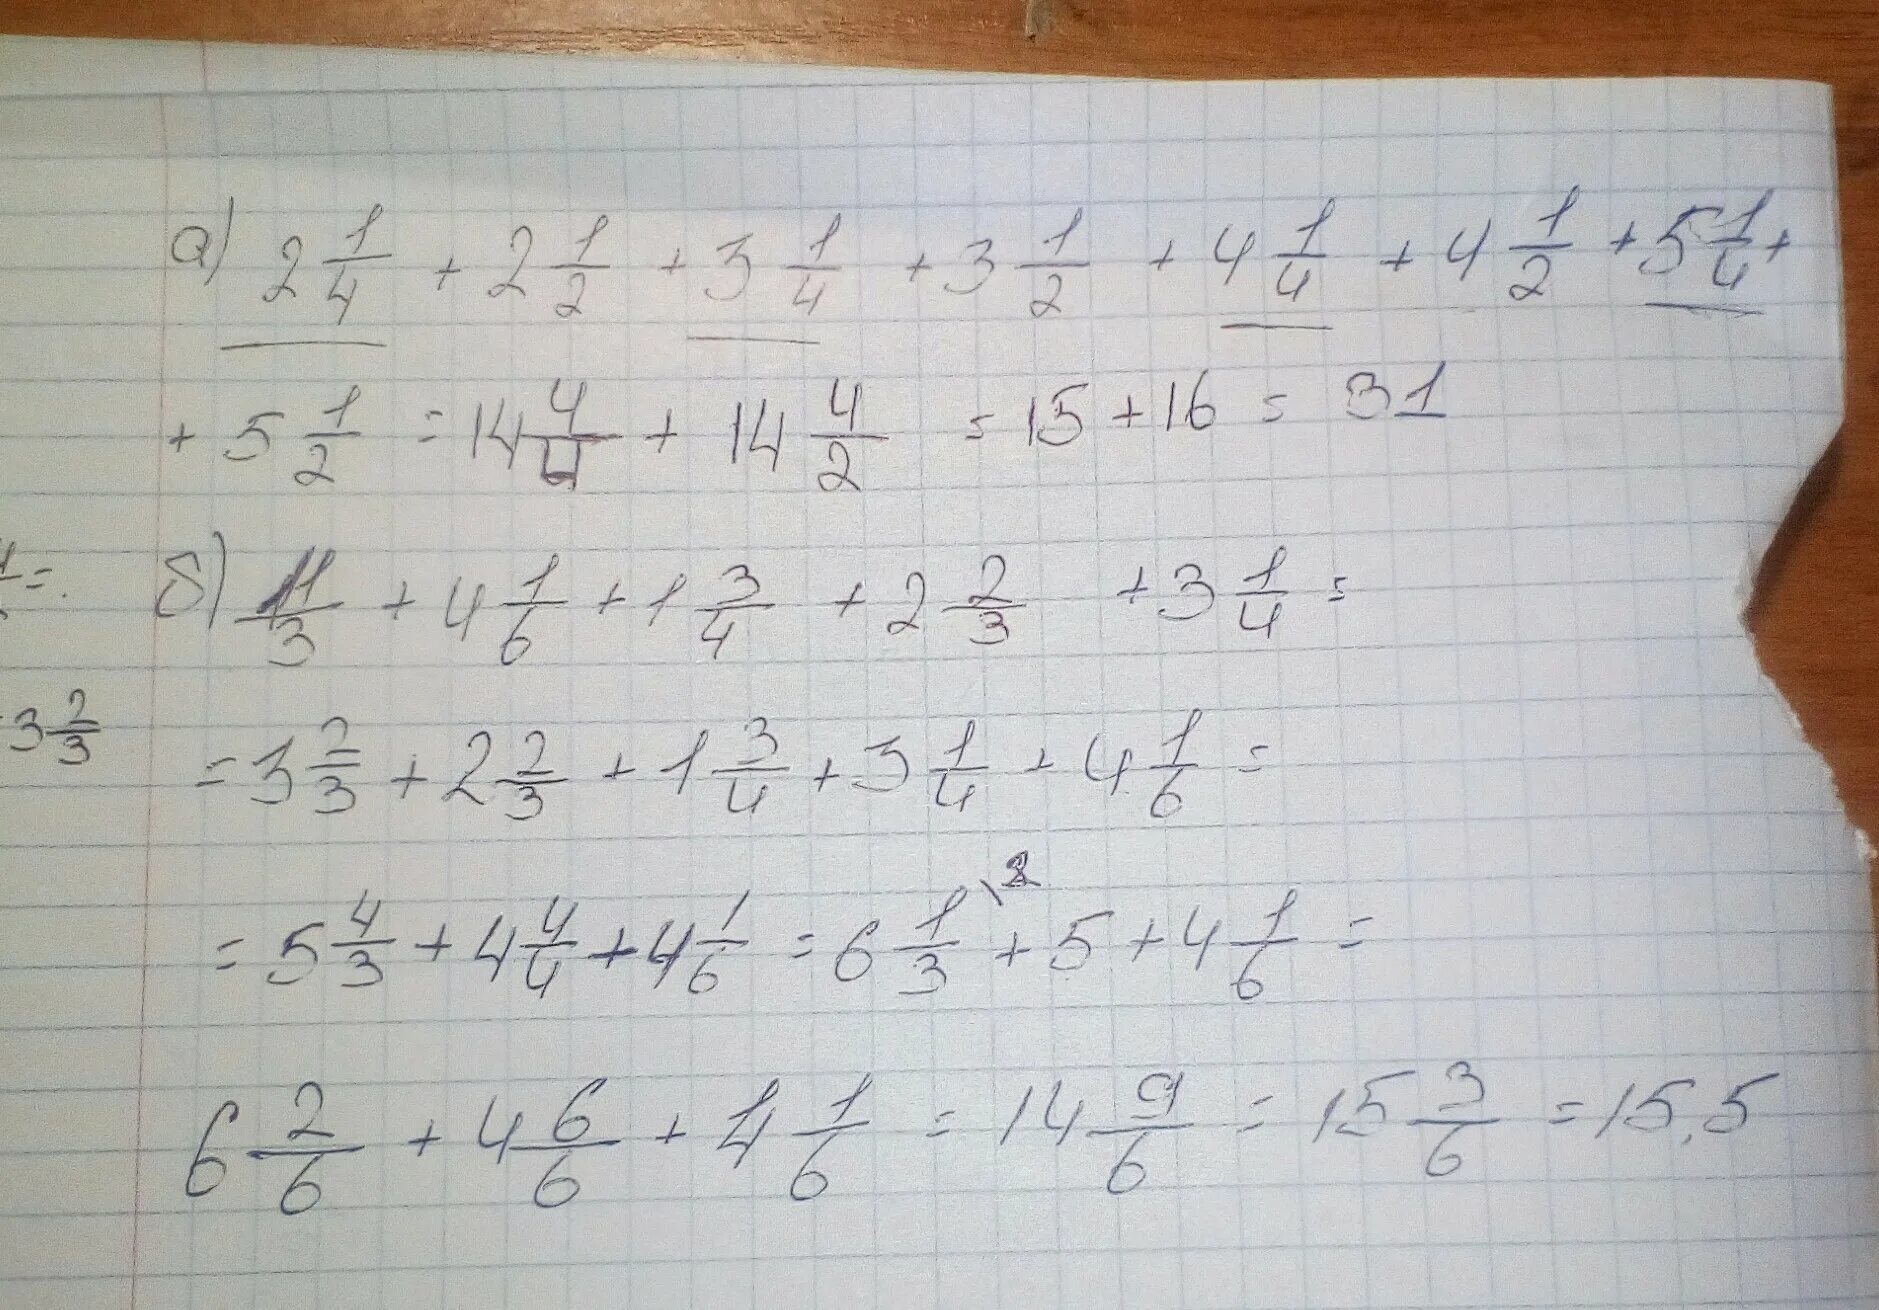 а) 2 1/4 + 2 1/2 + 3 1/4 + 3 1/2 + 4 1/4 + 4 1/2 + 5 1/4 +
+ 5 1/2 = 14 4/4 + 14 4/2 = 15 + 16 = 31
б) 11/3 + 4 1/6 + 1 3/4 + 2 2/3 + 3 1/4 =
= 3 2/3 + 2 2/3 + 1 3/4 + 3 1/4 + 4 1/6 =
= 5 4/3 + 4 4/4 + 4 1/6 = 6 1/3 \2 + 5 + 4 1/6 =
6 2/6 + 4 6/6 + 4 1/6 = 14 9/6 = 15 3/6 = 15,5
3 2/3